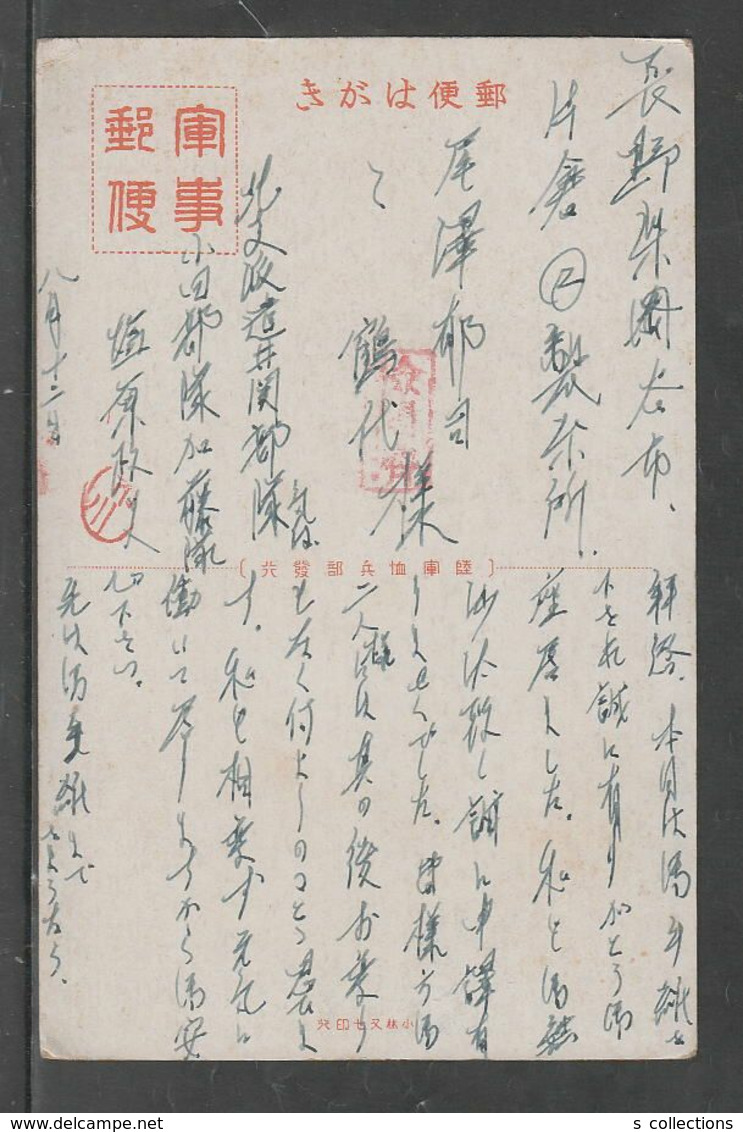 郵便はがき
軍事郵便
長野県岡谷市
片倉㊐製糸所
尾澤郁司
〃 鶴代様
北支派遣井関部隊
小田部隊加藤隊
八月十二日
〔陸軍恤兵部發行〕
拝啓、本日は御手紙を
下され誠に有りがとう御
座居ました。私も御無
沙汰致し誠に申譯有
りませんでした。皆様方御
二人にはその後お変り
もなく
す。私も相変らず元気に
働いて居りますから御安
心下さい。
先は御礼まで
さようなら、
小林又七印行
s collections
www.delcampe.net